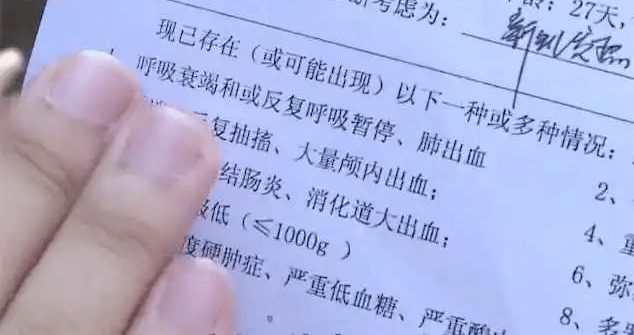 考虑为：
龄：27天，
现已存在（或可能出现）以下一种或多种情况：
呼吸衰竭和或反复呼吸暂停、肺出血
2、
反复抽搐、大量颅内出血；
4、重
结肠炎、消化道大出血；
6、弥
极低（≤1000g ）
8、多
度硬肿症、严重低血糖、严重酸